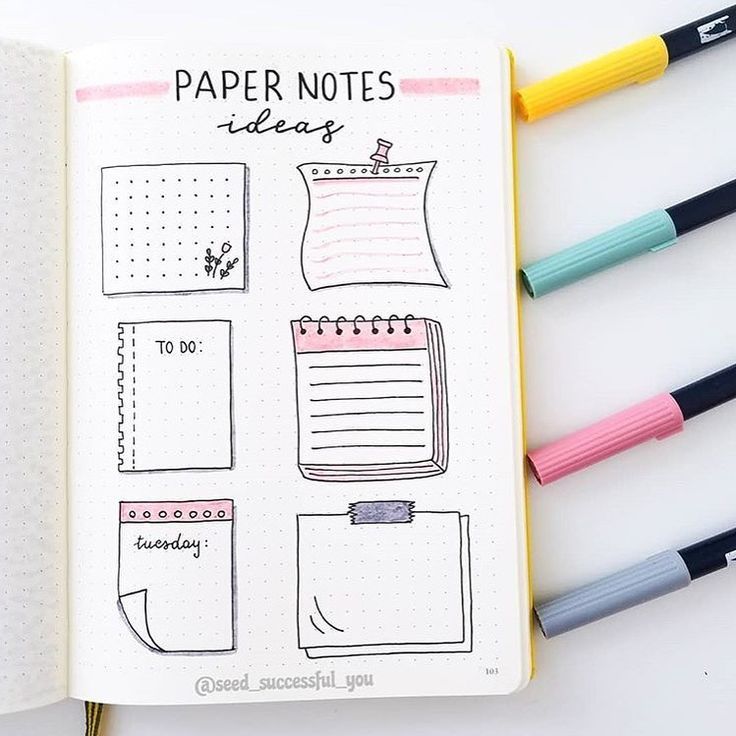 PAPER NOTES
ideas
TO DO:
tuesday:
@seed_successful_you
103